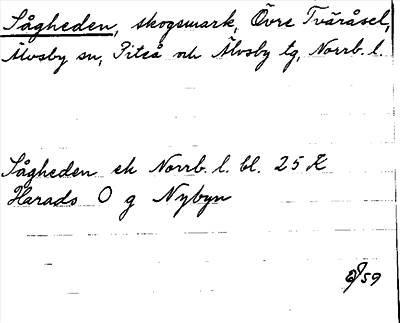 Sågheden, skogsmark, Övre Tväråsel,
Älvsby sn, Piteå och Älvsby tg, Norrb. l.
Sågheden ek Norrb. l. bl. 25 K
Harads O g Nybyn
/59